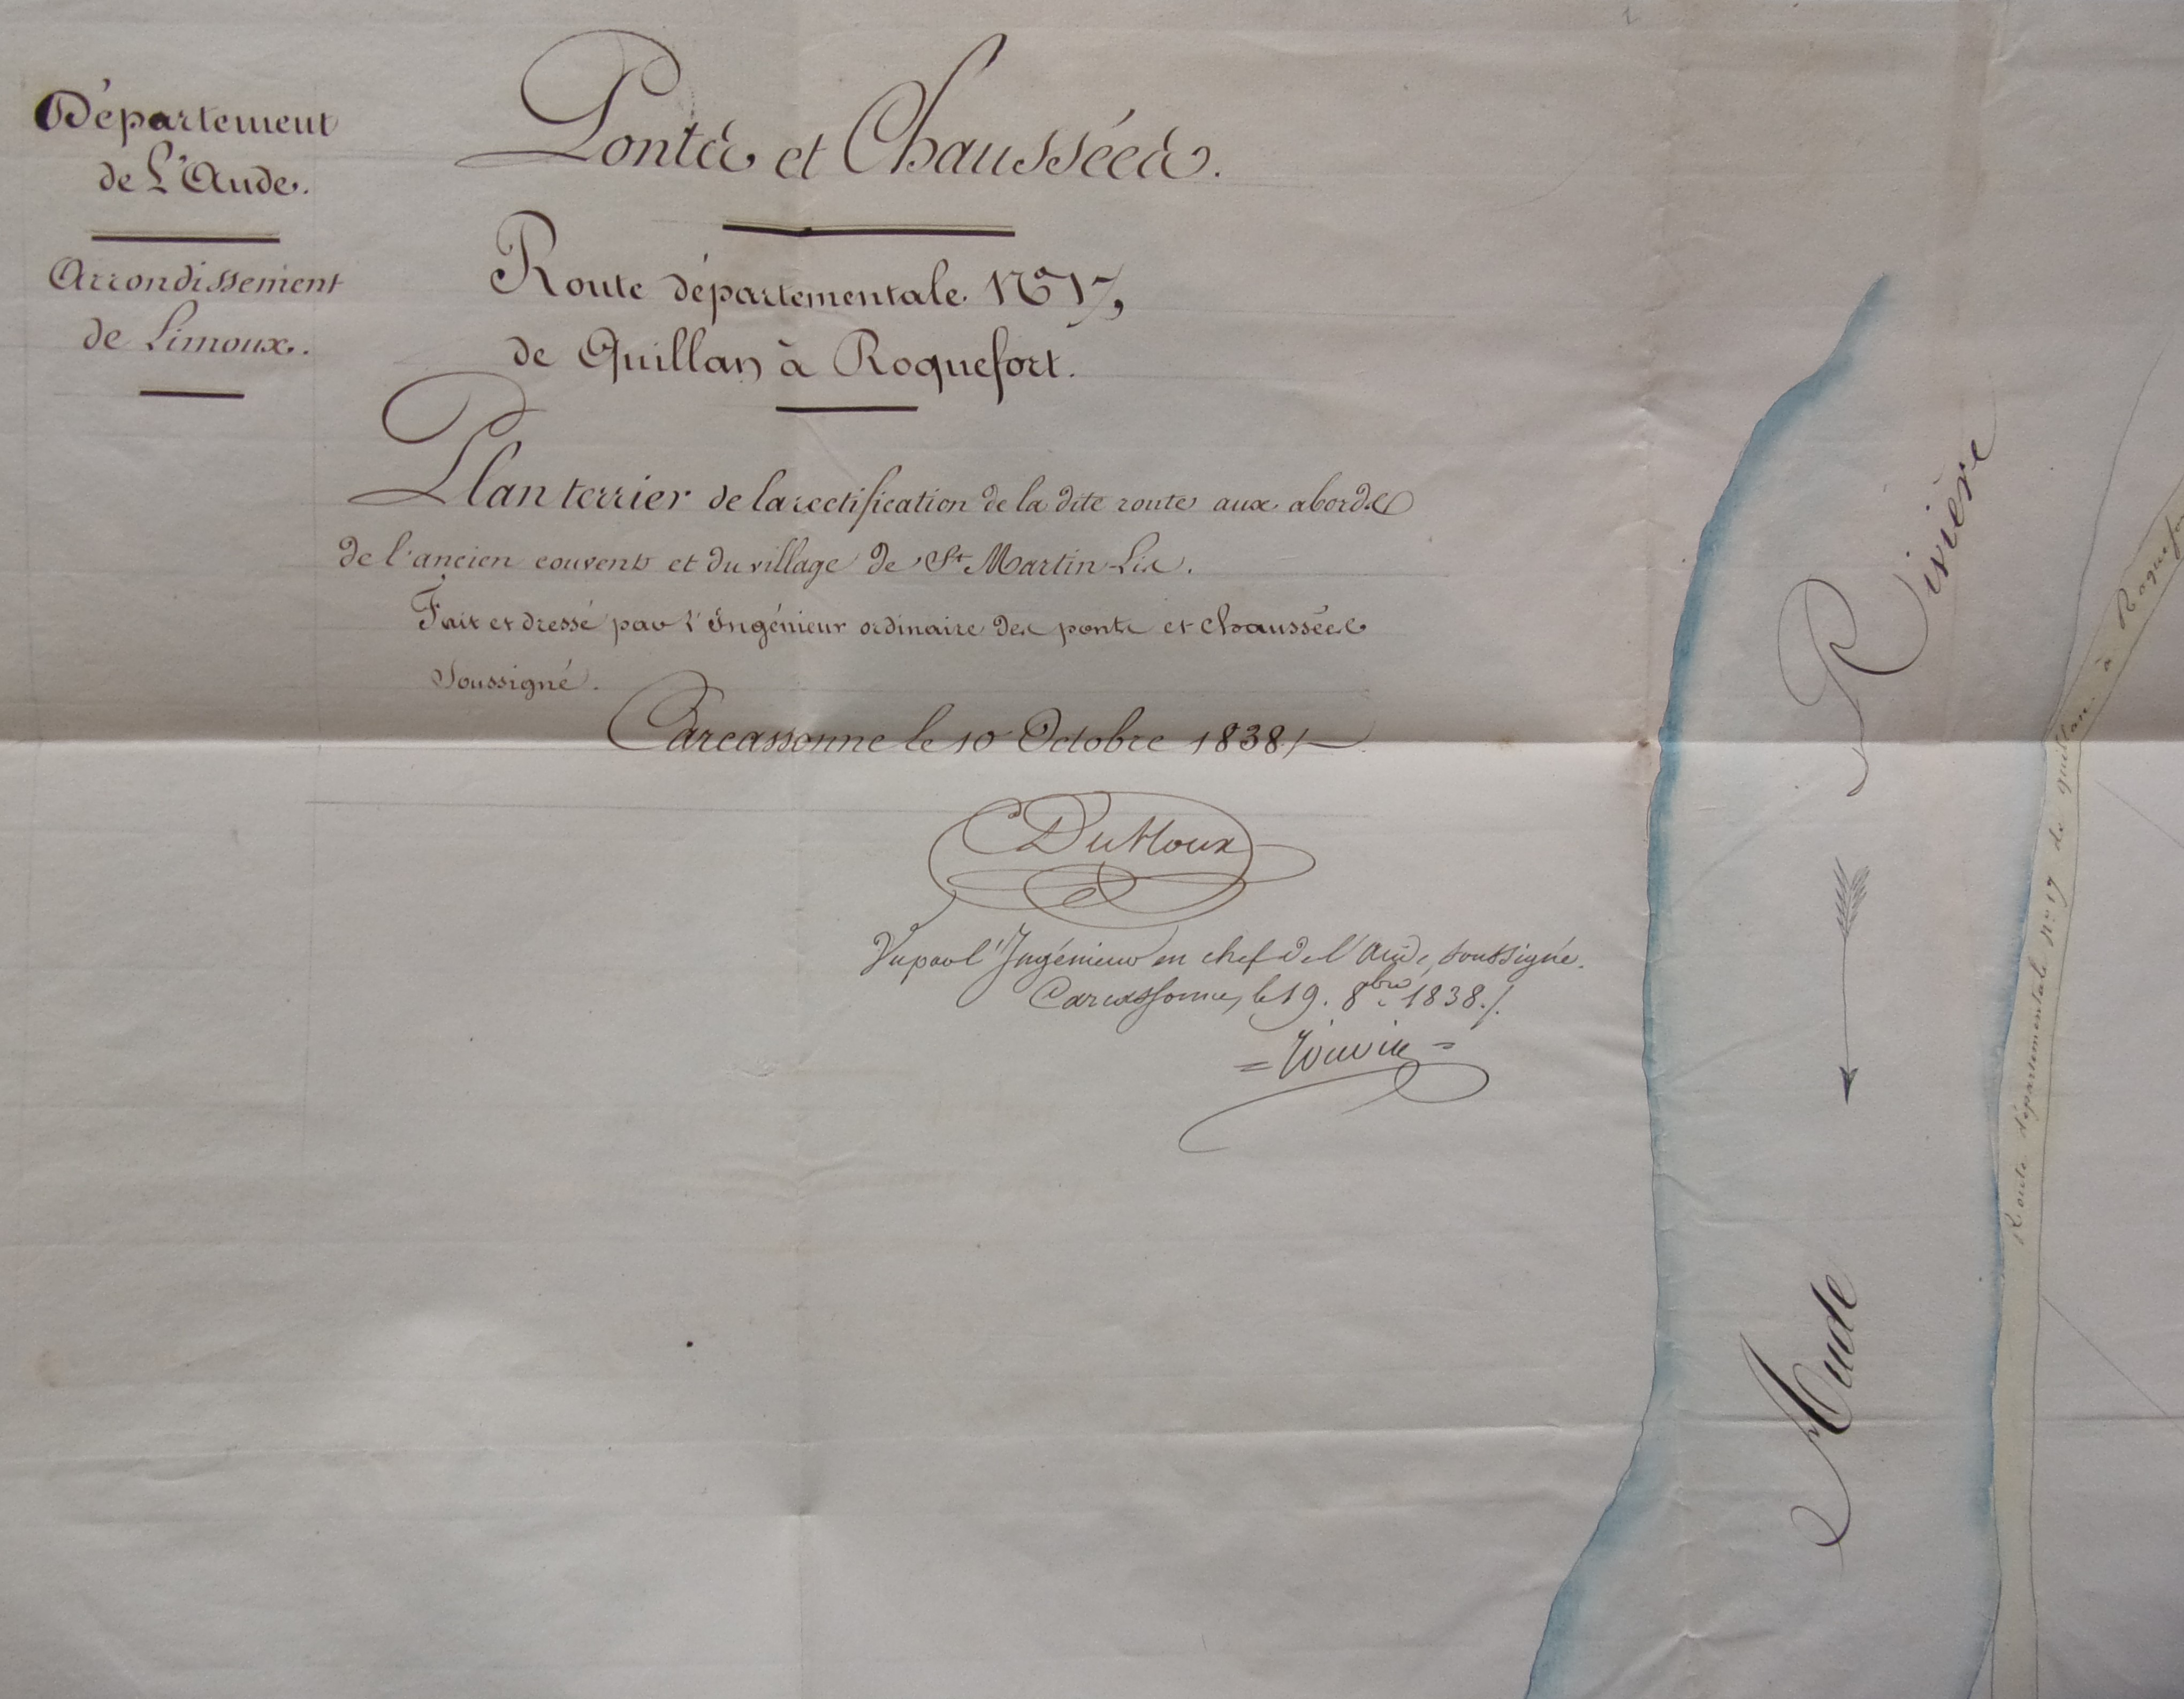 Département
de L'Aude.
Arrondissement
de Limoux.
Ponts et Chaussées.
Route départementale N° 17,
de Quillan à Roquefort.
Plan terrier de la rectification de la dite route aux abords
de l'ancien couvent et du village de St Martin-Lis.
Fait et dressé par l'Ingénieur ordinaire des ponts et chaussées
soussigné.
Carcassonne le 10 Octobre 1838./
Vu par l'Ingénieur en chef de l'Aude, soussigné.
Carcassonne, le 19. 8bre 1838./.
Rivière
Aude
Route départementale N° 17 de quillan à Roquefor